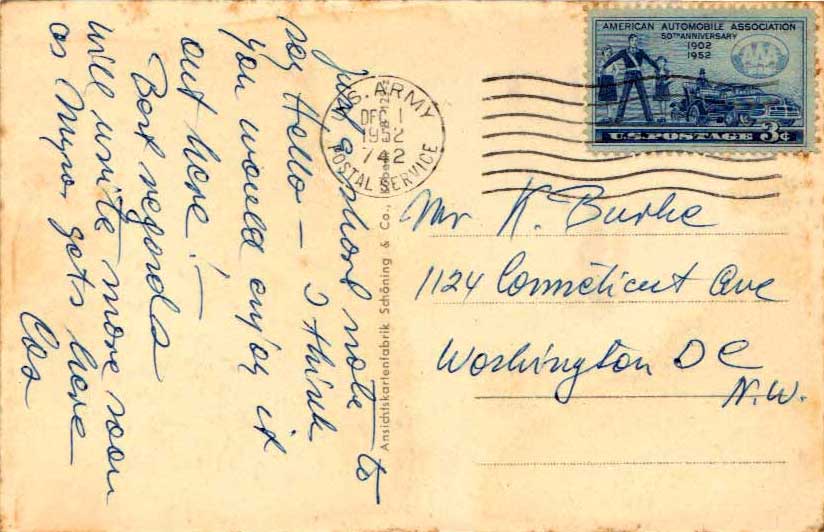 just a short note to
say Hello - I think
you would enjoy it
out here! -
Best regards
will write more soon
as Myra gets here
Cos
U.S. ARMY
DEC 1
1952
742
POSTAL SERVICE
Ansichtskartenfabrik Schöning & Co.,
AMERICAN AUTOMOBILE ASSOCIATION
50TH ANNIVERSARY
1902
1952
U.S. POSTAGE 3¢
Mr K. Burke
1124 Connecticut Ave
Washington DC
N.W.